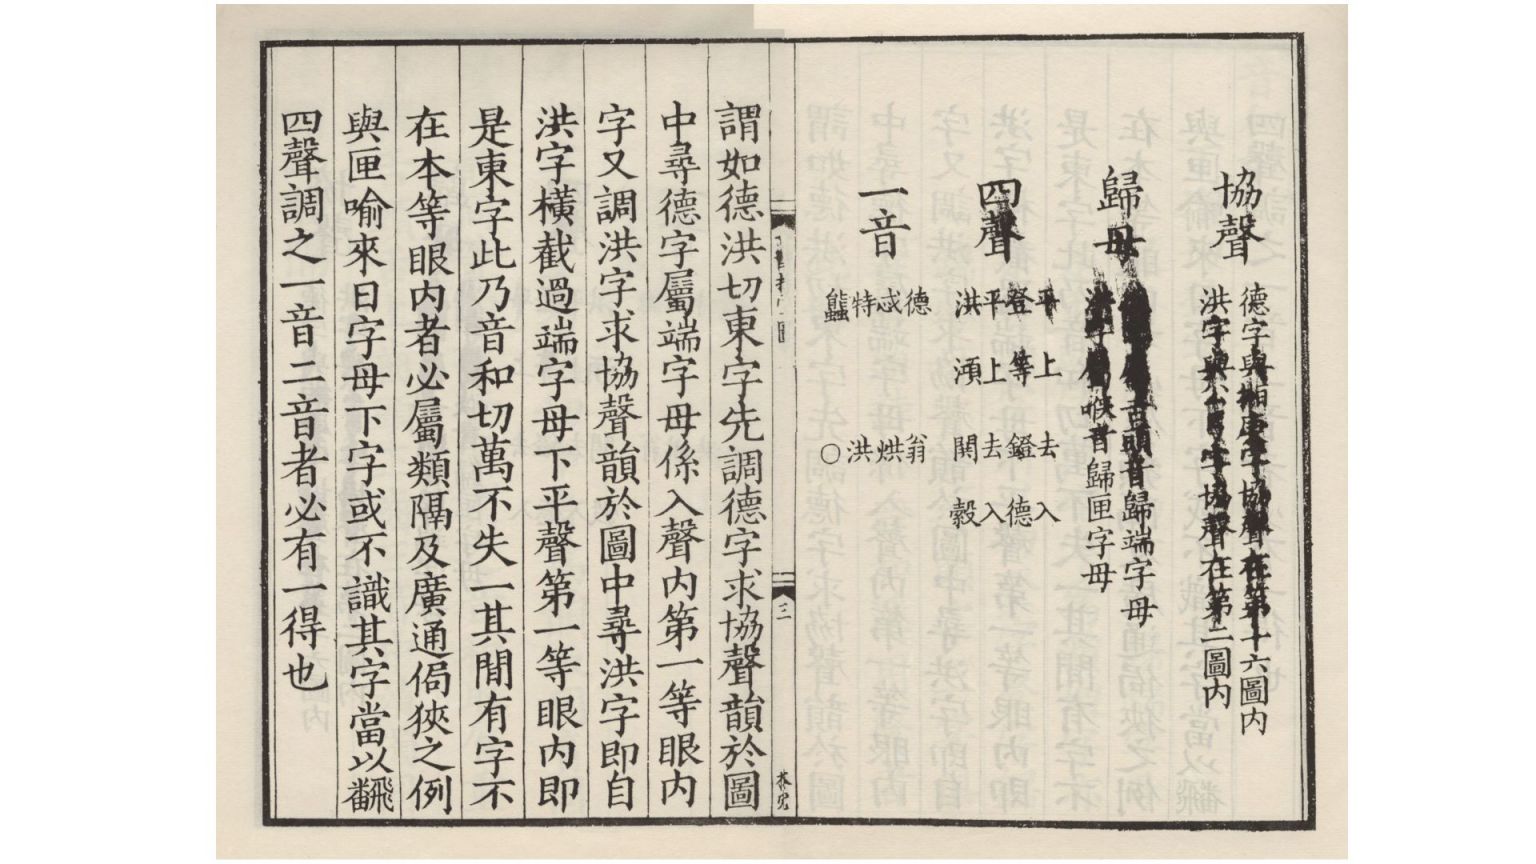 協聲
德字與 字協聲在第十六圖內
洪字與 字協聲在第二圖內
歸母
舌頭音歸端字母
洪字屬喉音歸匣字母
四聲
平上去入
登等鐙德
平上去入
洪澒閧縠
一音
德忒特䘆
翁烘洪○
三
謂如德洪切東字先調德字求協聲韻於圖
中尋德字屬端字母係入聲內第一等眼內
字又調洪字求協聲韻於圖中尋洪字即自
洪字橫截過端字母下平聲第一等眼內即
是東字此乃音和切萬不失一其間有字不
在本等眼內者必屬類隔及廣通侷狹之例
與匣喻來日字母下字或不識其字當以翻
四聲調之一音二音者必有一得也